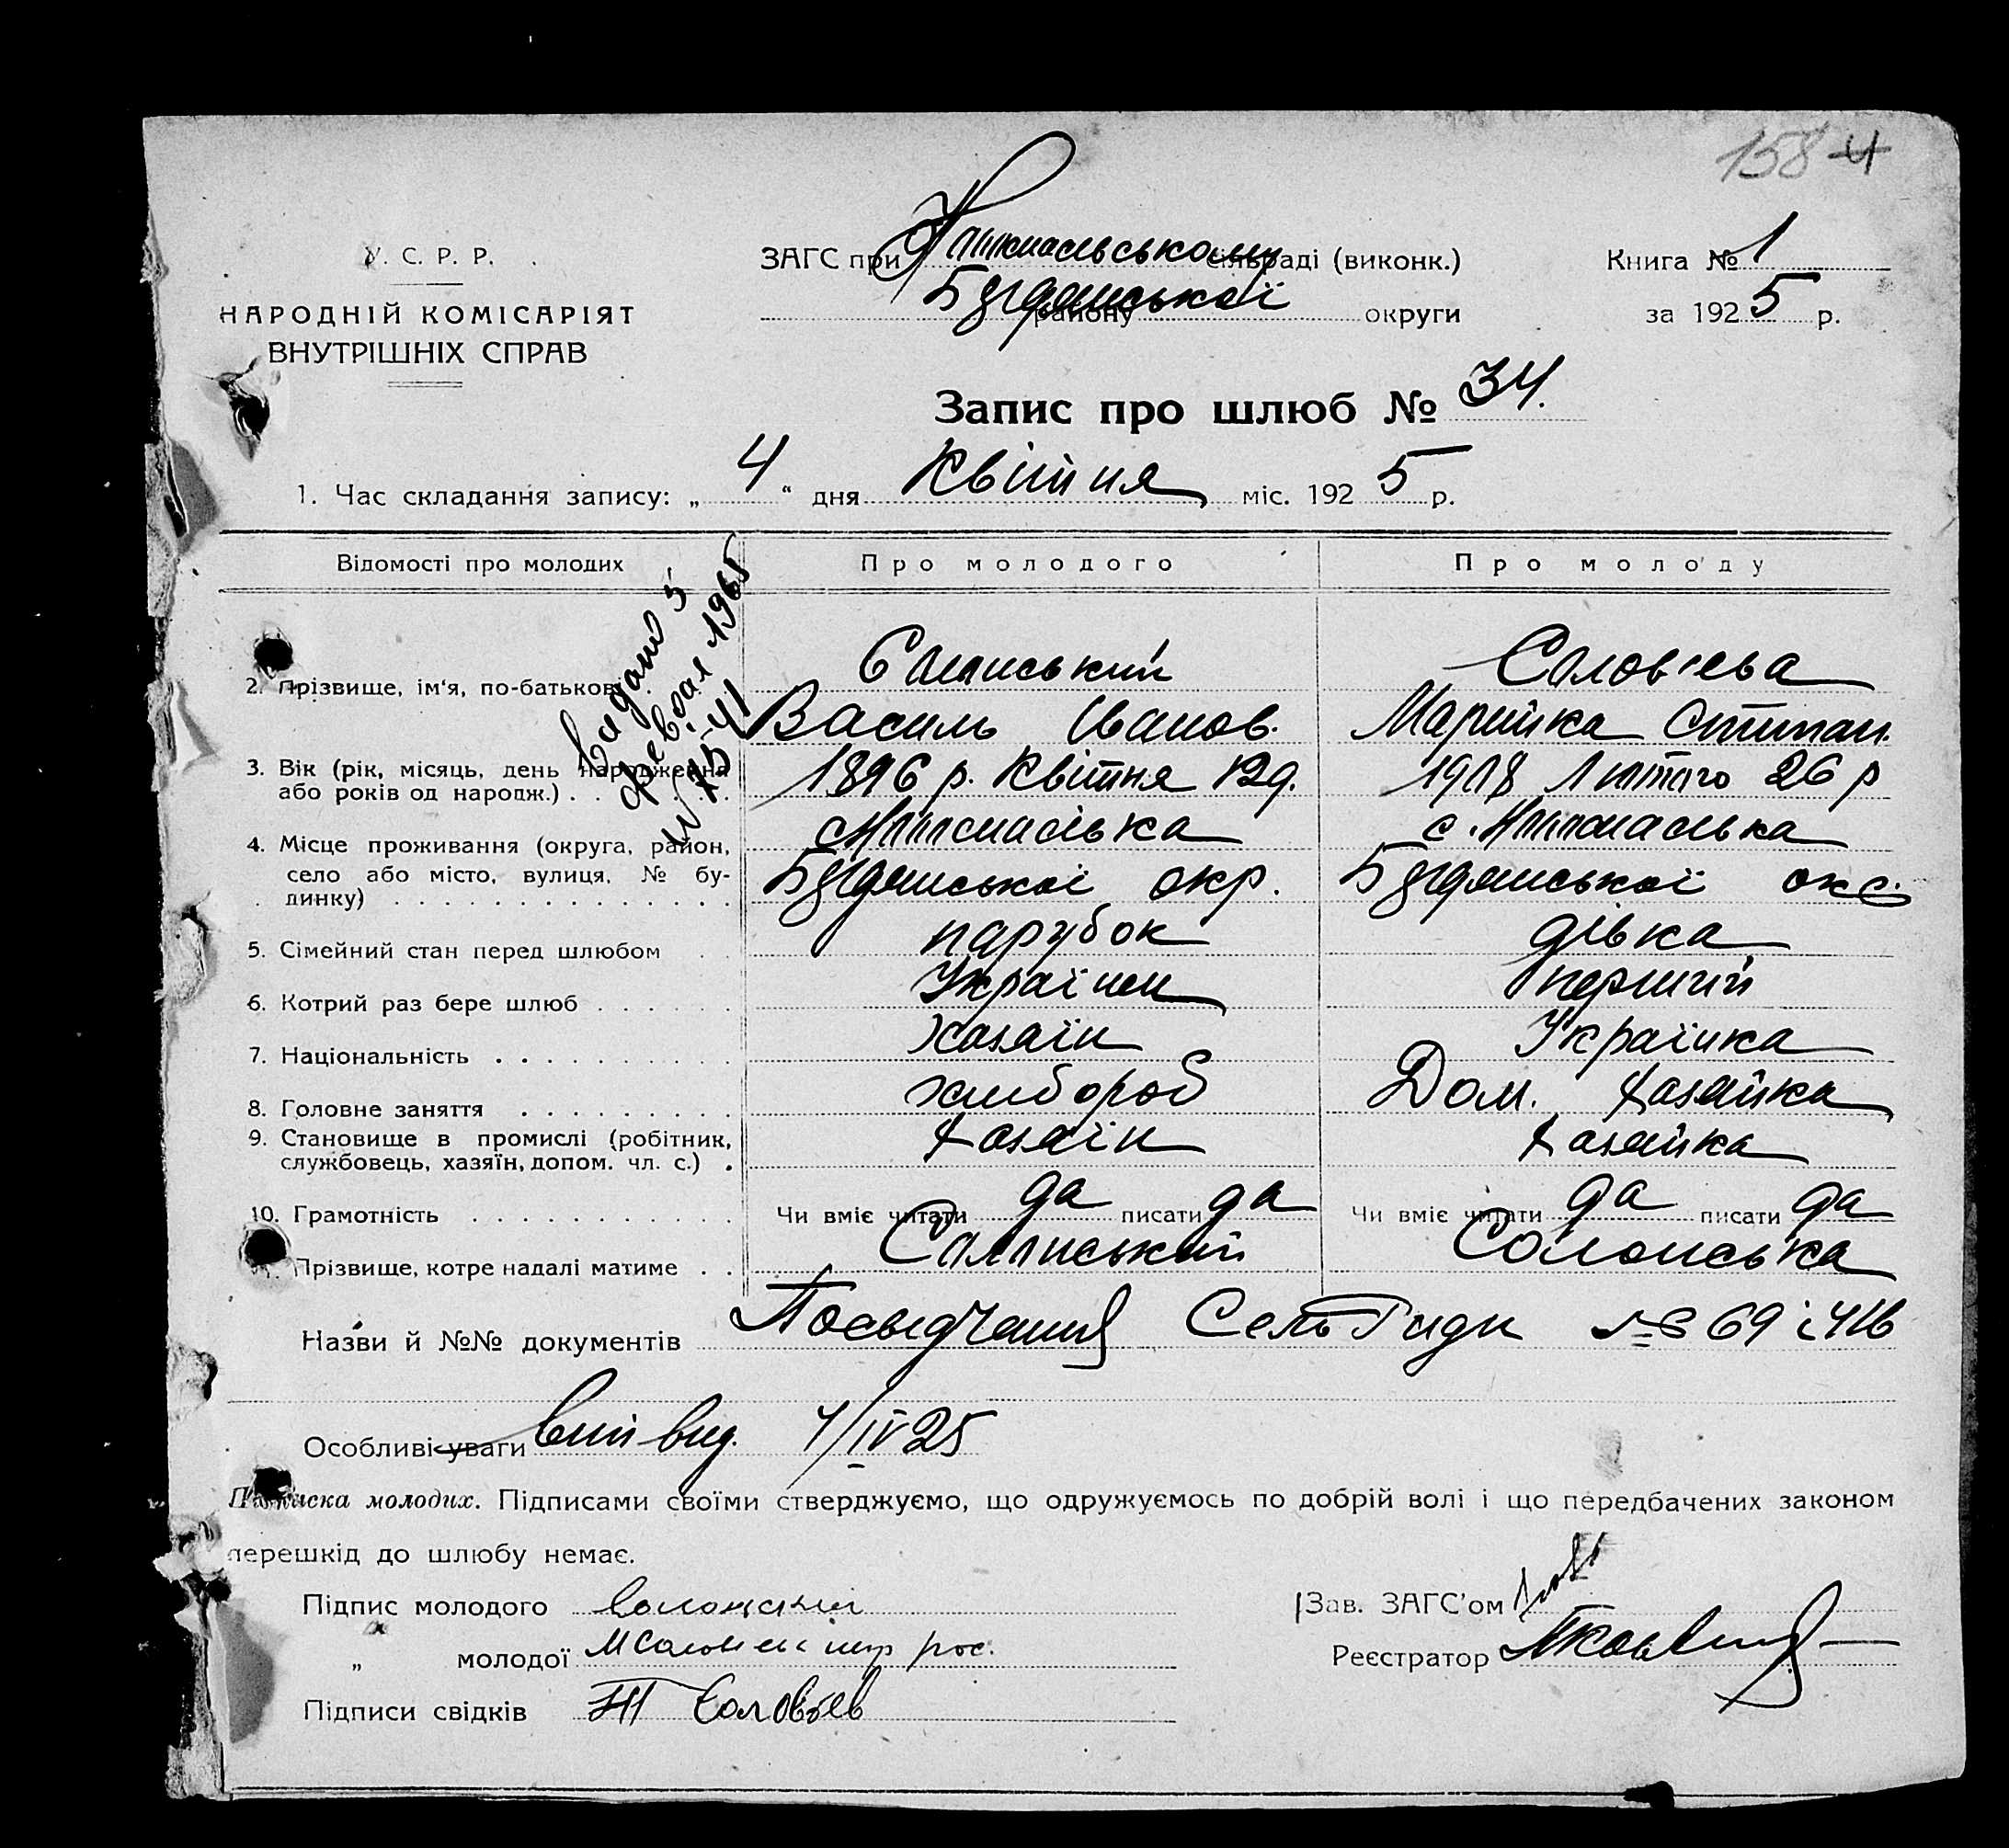 158 4
У. С. Р. Р.
НАРОДНІЙ КОМІСАРІЯТ
ВНУТРІШНІХ СПРАВ
ЗАГС при сільраді (виконк.)
району округи
Книга № 1
за 1925 р.
Запис про шлюб № 34.
1. Час складання запису: „ 4 “ дня Квітня міс. 1925 р.
Відомості про молодих
Про молодого
Про молоду
Видано 5
февраля 1965
2. Прізвище, ім‘я, по-батькові
Василь Іванов.
Соловієва
Марийка Степан.
3. Вік (рік, місяць, день народження
або років од народж.) . . . . .
1896 р. Квітня 12 д.
Лютого 26 р
4. Місце проживання (округа, район,
село або місто, вулиця, № бу-
динку) . . . . . . . . . . . . . .
окр.
с.
окр.
5. Сімейний стан перед шлюбом . .
парубок
дівка
6. Котрий раз бере шлюб . . . . . .
Українець
перший
7. Національність . . . . . . . . .
хазаїн
Українка
8. Головне заняття . . . . . . . . .
хлибороб
Дом. хазяйка
9. Становище в промислі (робітник,
службовець, хазяїн, допом. чл. с.) .
хазаїн
хазяйка
10. Грамотність . . . . . . . . . . .
Чи вміє читати да писати да
Чи вміє читати да писати да
11. Прізвище, котре надалі матиме . .
Солонська
Назви й №№ документів Посьвідчення № 69 і
Особливі уваги 4/IV 25
Підписка молодих. Підписами своїми стверджуємо, що одружуємось по добрій волі і що передбачених законом
перешкід до шлюбу немає.
Підпис молодого
„ молодої
Підписи свідків Соловьев
Зав. ЗАГС‘ом
Реєстратор